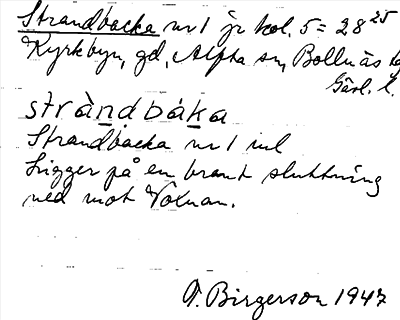 Strandbacka nr 1 jr kol. 5 = 28 25
Kyrkbyn, gd, Alfta sn, Bollnäs
Gävl. l.
stràndbáka
Strandbacka nr 1 inl
Ligger på en brant sluttning
ned mot Voxnan.
Birgerson 1947